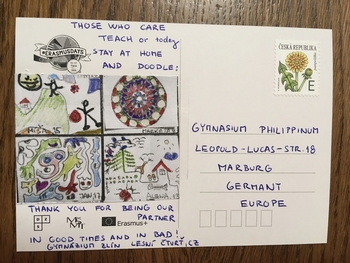 THOSE WHO CARE
TEACH or today
STAY AT HOME
AND DOODLE:
#ERASMUSDAYS
ČESKÁ REPUBLIKA
E
GYMNASIUM PHILIPPINUM
LEOPOLD-LUCAS-STR. 18
MARBURG
GERMANY
EUROPE
THANK YOU FOR BEING OUR
PARTNER
Erasmus+
IN GOOD TIMES AND IN BAD!
GYMNÁZIUM ZLÍN LESNÍ ČTVRŤ, CZ